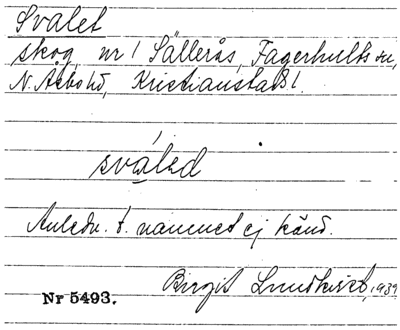 Svalet
skog nr 1 Sällerås, Fagerhults sn,
N. Åsbo hd, Kristianstads l.
svaled
Anledn. t. namnet ej känd.
Birgit Lundkvist, 1939
Nr 5493.